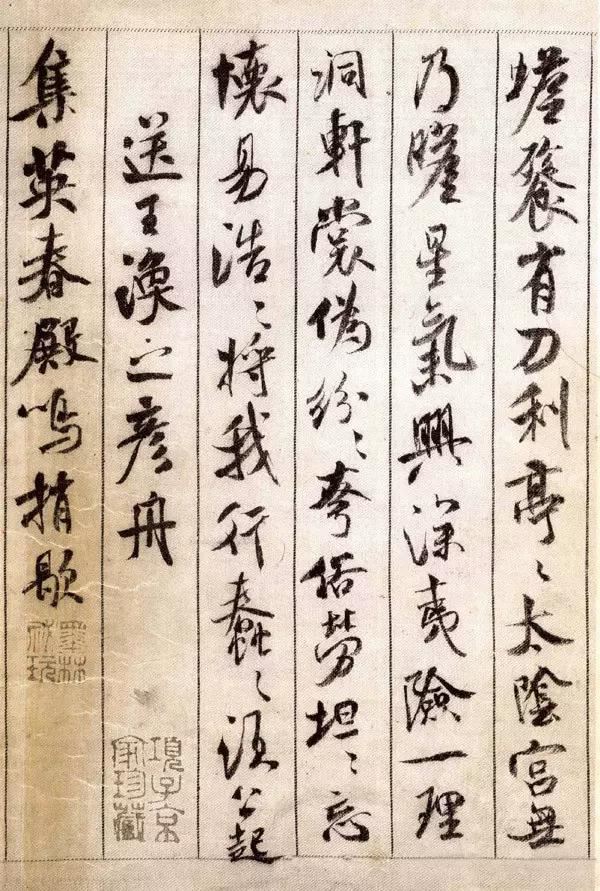 蟾餮有刀利亭〻太陰宮無
乃瞻星氣興深夷險一理
洞軒裳偽紛〻夸俗勞坦〻忘
懷易浩〻將我行蠢〻須公起
送王渙之彥舟
集英春殿鳴捎歇
項子京家珍藏
墨林祕玩